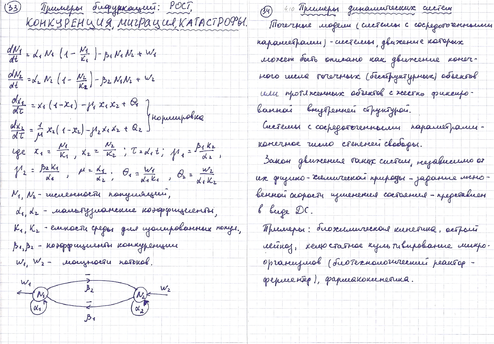 33 Примеры бифуркаций: РОСТ,
КОНКУРЕНЦИЯ, МИГРАЦИЯ, КАТАСТРОФЫ.
dN₁/dt = α₁N₁(1 − N₁/K₁) − β₁N₁N₂ + w₁
dN₂/dt = α₂N₂(1 − N₂/K₂) − β₂N₁N₂ + w₂
dx₁/dt = x₁(1−x₁) − μ₁x₁x₂ + Θ₁
нормировка
dx₂/dt = 1/μ x₂(1−x₂) − μ₂x₁x₂ + Θ₂
где x₁ = N₁/K₁, x₂ = N₂/K₂; τ = α₁t;
N₁, N₂ - численности популяций,
α₁, α₂ - мальтузианские коэффициенты,
K₁, K₂ - емкости среды для изолированных попул.,
β₁, β₂ - коэффициенты конкуренции
w₁, w₂ - мощности потоков.
w₁
w₂
N₁
β₂
N₂
α₁
β₁
α₂
34 Примеры динамических систем
Точечные модели (системы с сосредоточенными
параметрами) - системы, движение которых
может быть описано как движение конеч-
ного числа точечных (бесструктурных) объектов
или протяженных объектов с жестко фиксиро-
ванной внутренней структурой.
Системы с сосредоточенными параметрами -
конечное число степеней свободы.
Закон движения таких систем, независимо от
их физико-химической природы - задание мгно-
венной скорости изменения состояния - представлен
в виде ДС.
Примеры: биохимическая кинетика, острый
лейкоз, непрерывное культивирование микро-
организмов (биотехнологический реактор -
ферментер), фармакокинетика.